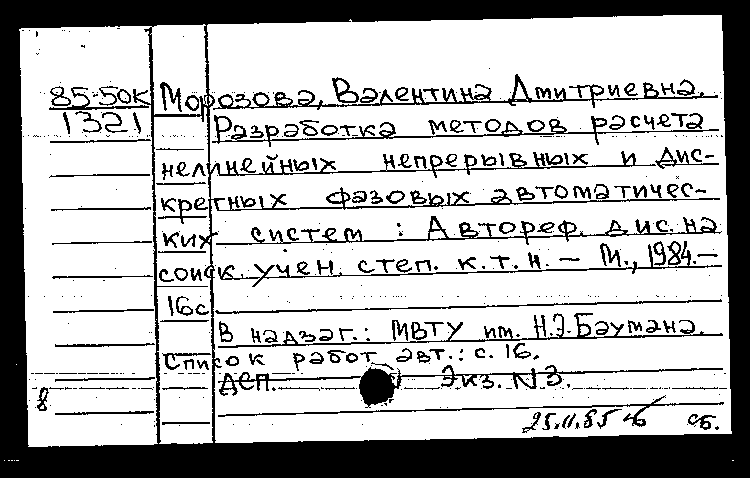 85-50К Морозова, Валентина Дмитриевна.
1321 Разработка методов расчета
нелинейных непрерывных и дис-
кретных фазовых автоматичес-
ких систем : Автореф. дис. на
соиск. учен. степ. к.т.н. – М., 1984. –
16с
В надзаг.: МВТУ им. Н.Э.Баумана.
Список работ авт.: с. 16.
ДСП. Экз. N3.
8
25.11.85 сб.